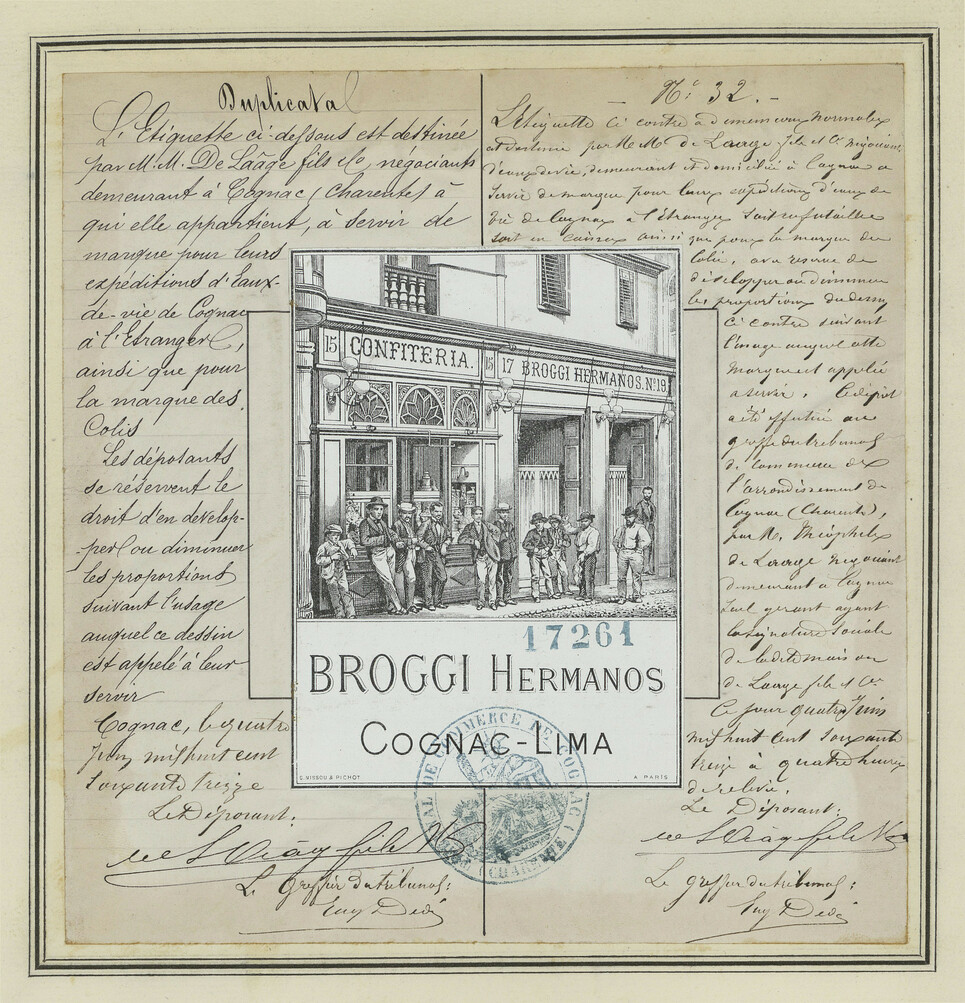 Duplicata
L'Etiquette ci-dessous est destinée
par M.M. De Laâge fils & Co, négociants
demeurant à Cognac (Charente) à
qui elle appartient, à servir de
marque pour leurs
expéditions d'Eaux-
de-vie de Cognac
à l'Etranger,
ainsi que pour
la marque des
Colis
Les déposants
se réservent le
droit d'en dévelop-
per ou diminuer
les proportions
suivant l'usage
auquel ce dessin
est appelé à leur
servir
Cognac, le quatre
Juin mil huit cent
soixante treize
Le Déposant:
Le Greffier du tribunal:
No 32.-
L'étiquette ci contre a dimensions normales
est destinée par MM. de Laage fils et Cie négociants
d'eaux de vie, demeurant et domiciliés à Cognac a
servir de marque pour leurs expéditions d'eaux de
vie de Cognac à l'étranger soit en futailles
soit en caisses ainsi que pour la marque des
colis, avec réserve de
développer ou diminuer
les proportions du dessin
ci contre suivant
l'usage auquel cette
marque est appelée
a servir. Le dépôt
a été effectué au
greffe du tribunal
de commerce de
l'arrondissement de
Cognac (Charente),
par M. Théophile
de Laage négociant
demeurant a Cognac
seul gérant ayant
la signature sociale
de la dite maison
de Laage fils et Cie
Ce jour quatre Juin
mil huit cent soixante
treize à quatre heures
de relevée.
Le Déposant:
Le greffier du tribunal:
15 CONFITERIA. 15 17 BROGGI HERMANOS. No 19.
17261
BROGGI HERMANOS
COGNAC-LIMA
G. WISSOU & PICHOT A PARIS
TRIBUNAL DE COMMERCE DE COGNAC (CHARENTE)